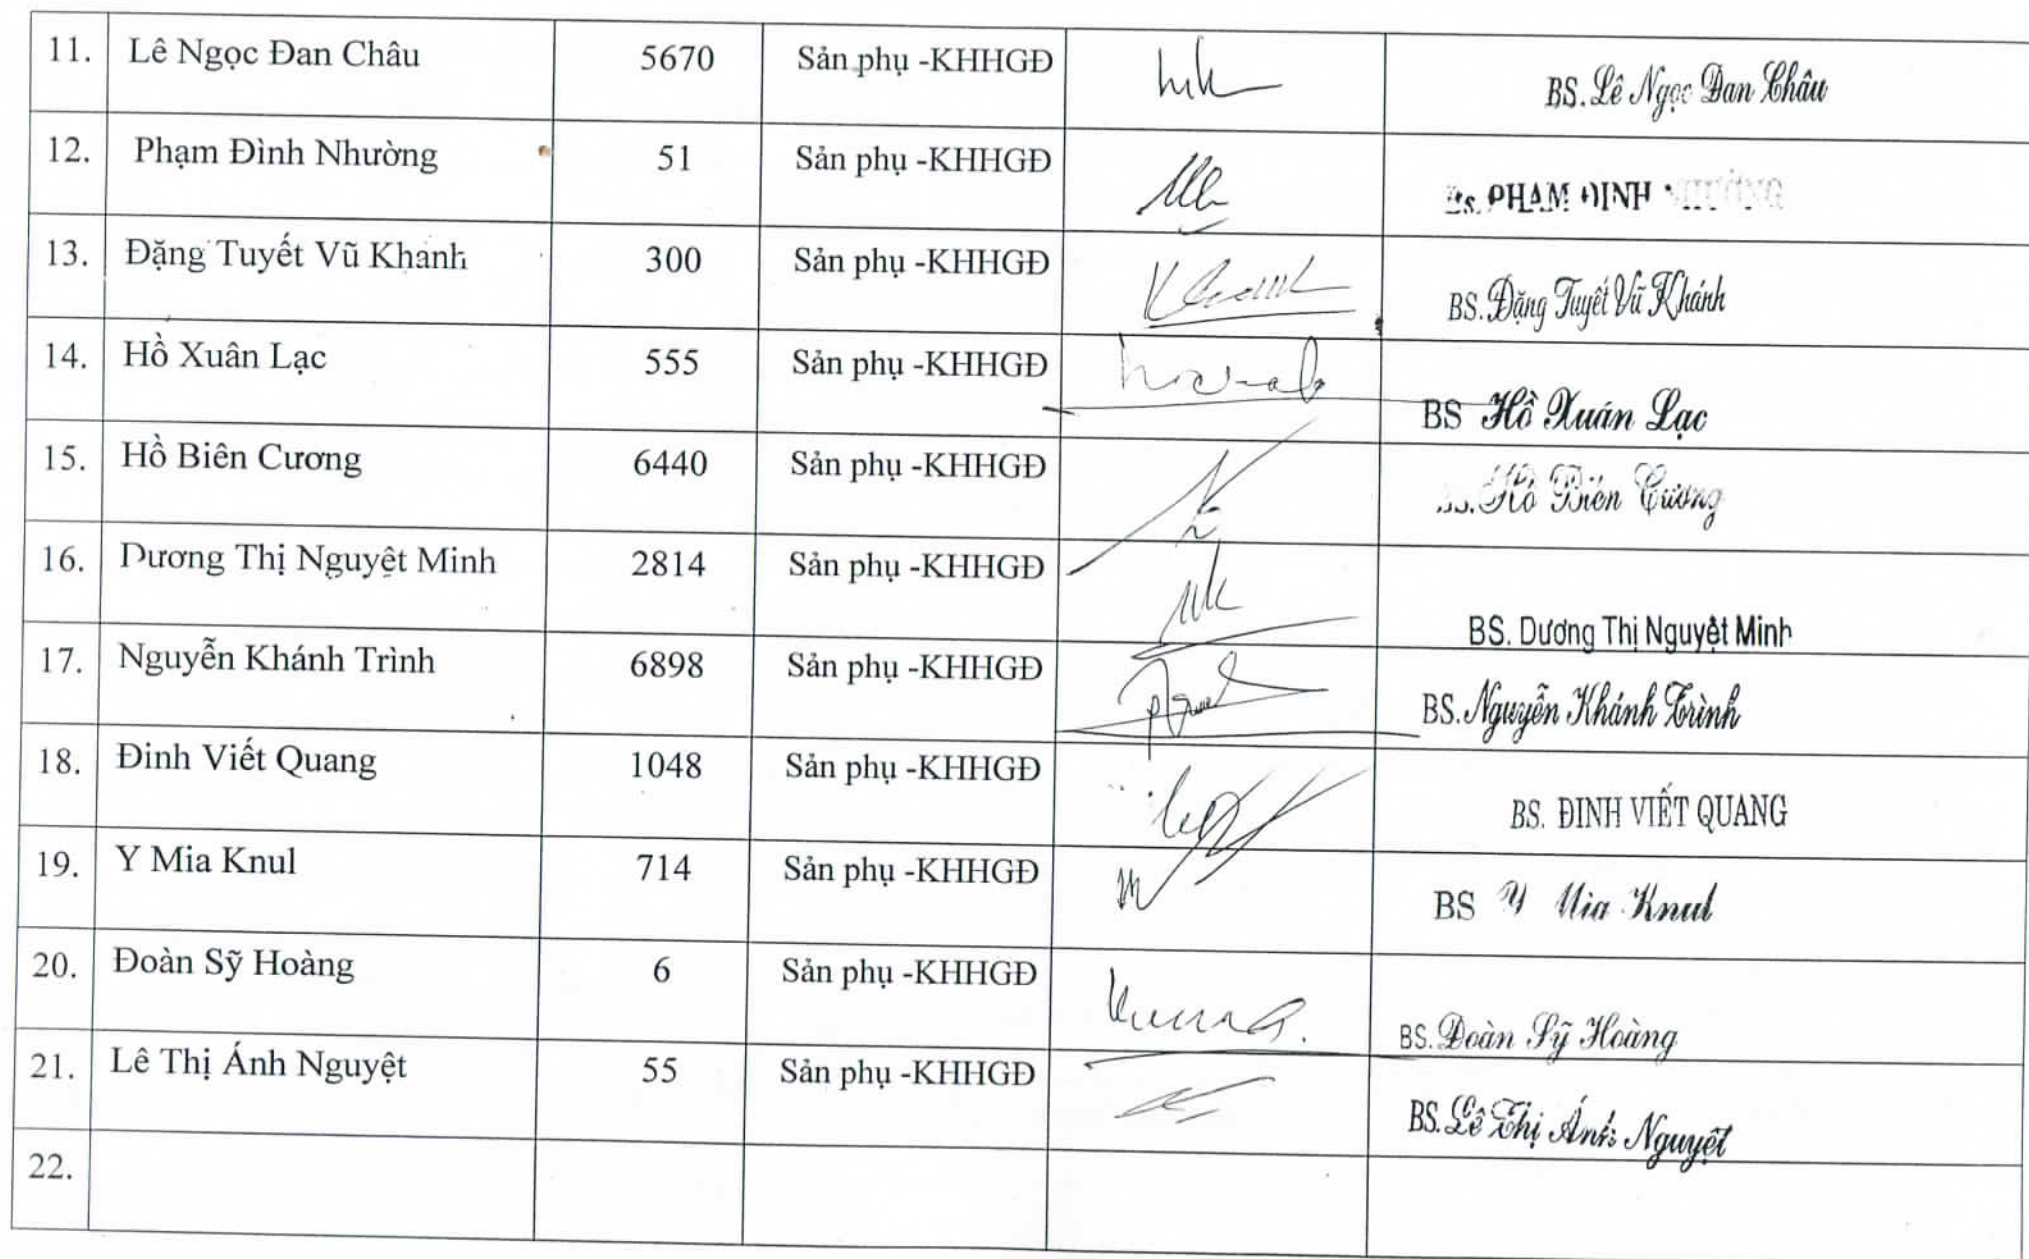 11. Lê Ngọc Đan Châu 5670 Sản phụ -KHHGĐ BS. Lê Ngọc Đan Châu
12. Phạm Đình Nhường 51 Sản phụ -KHHGĐ Bs. PHẠM ĐÌNH
13. Đặng Tuyết Vũ Khánh 300 Sản phụ -KHHGĐ BS. Đặng Tuyết Vũ Khánh
14. Hồ Xuân Lạc 555 Sản phụ -KHHGĐ BS Hồ Xuân Lạc
15. Hồ Biên Cương 6440 Sản phụ -KHHGĐ Hồ Biên Cương
16. Dương Thị Nguyệt Minh 2814 Sản phụ -KHHGĐ BS. Dương Thị Nguyệt Minh
17. Nguyễn Khánh Trình 6898 Sản phụ -KHHGĐ BS. Nguyễn Khánh Trình
18. Đinh Viết Quang 1048 Sản phụ -KHHGĐ BS. ĐINH VIẾT QUANG
19. Y Mia Knul 714 Sản phụ -KHHGĐ BS Y Mia Knul
20. Đoàn Sỹ Hoàng 6 Sản phụ -KHHGĐ BS. Đoàn Sỹ Hoàng
21. Lê Thị Ánh Nguyệt 55 Sản phụ -KHHGĐ BS. Lê Thị Ánh Nguyệt
22.